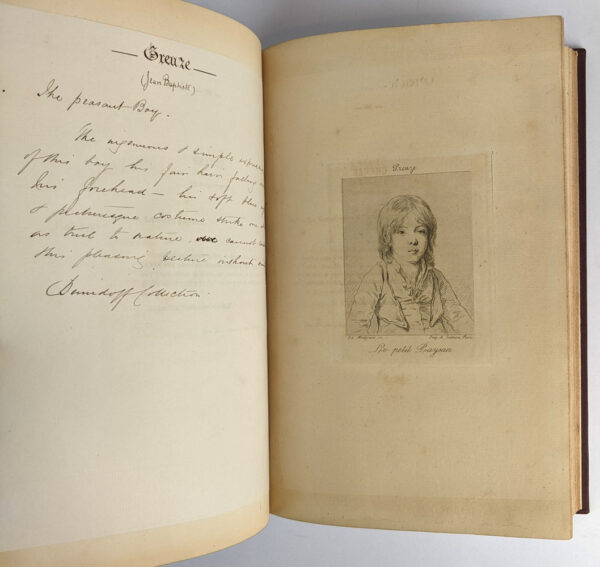 — Greuze —
(Jean Baptiste)
The peasant Boy.
The ingenuous & simple
of this boy his fair hair falling
his forehead — his soft blue
& picturesque costume strike one
as true to nature cannot
this pleasing picture without
Demidoff Collection.
Greuze
Le petit Paysan